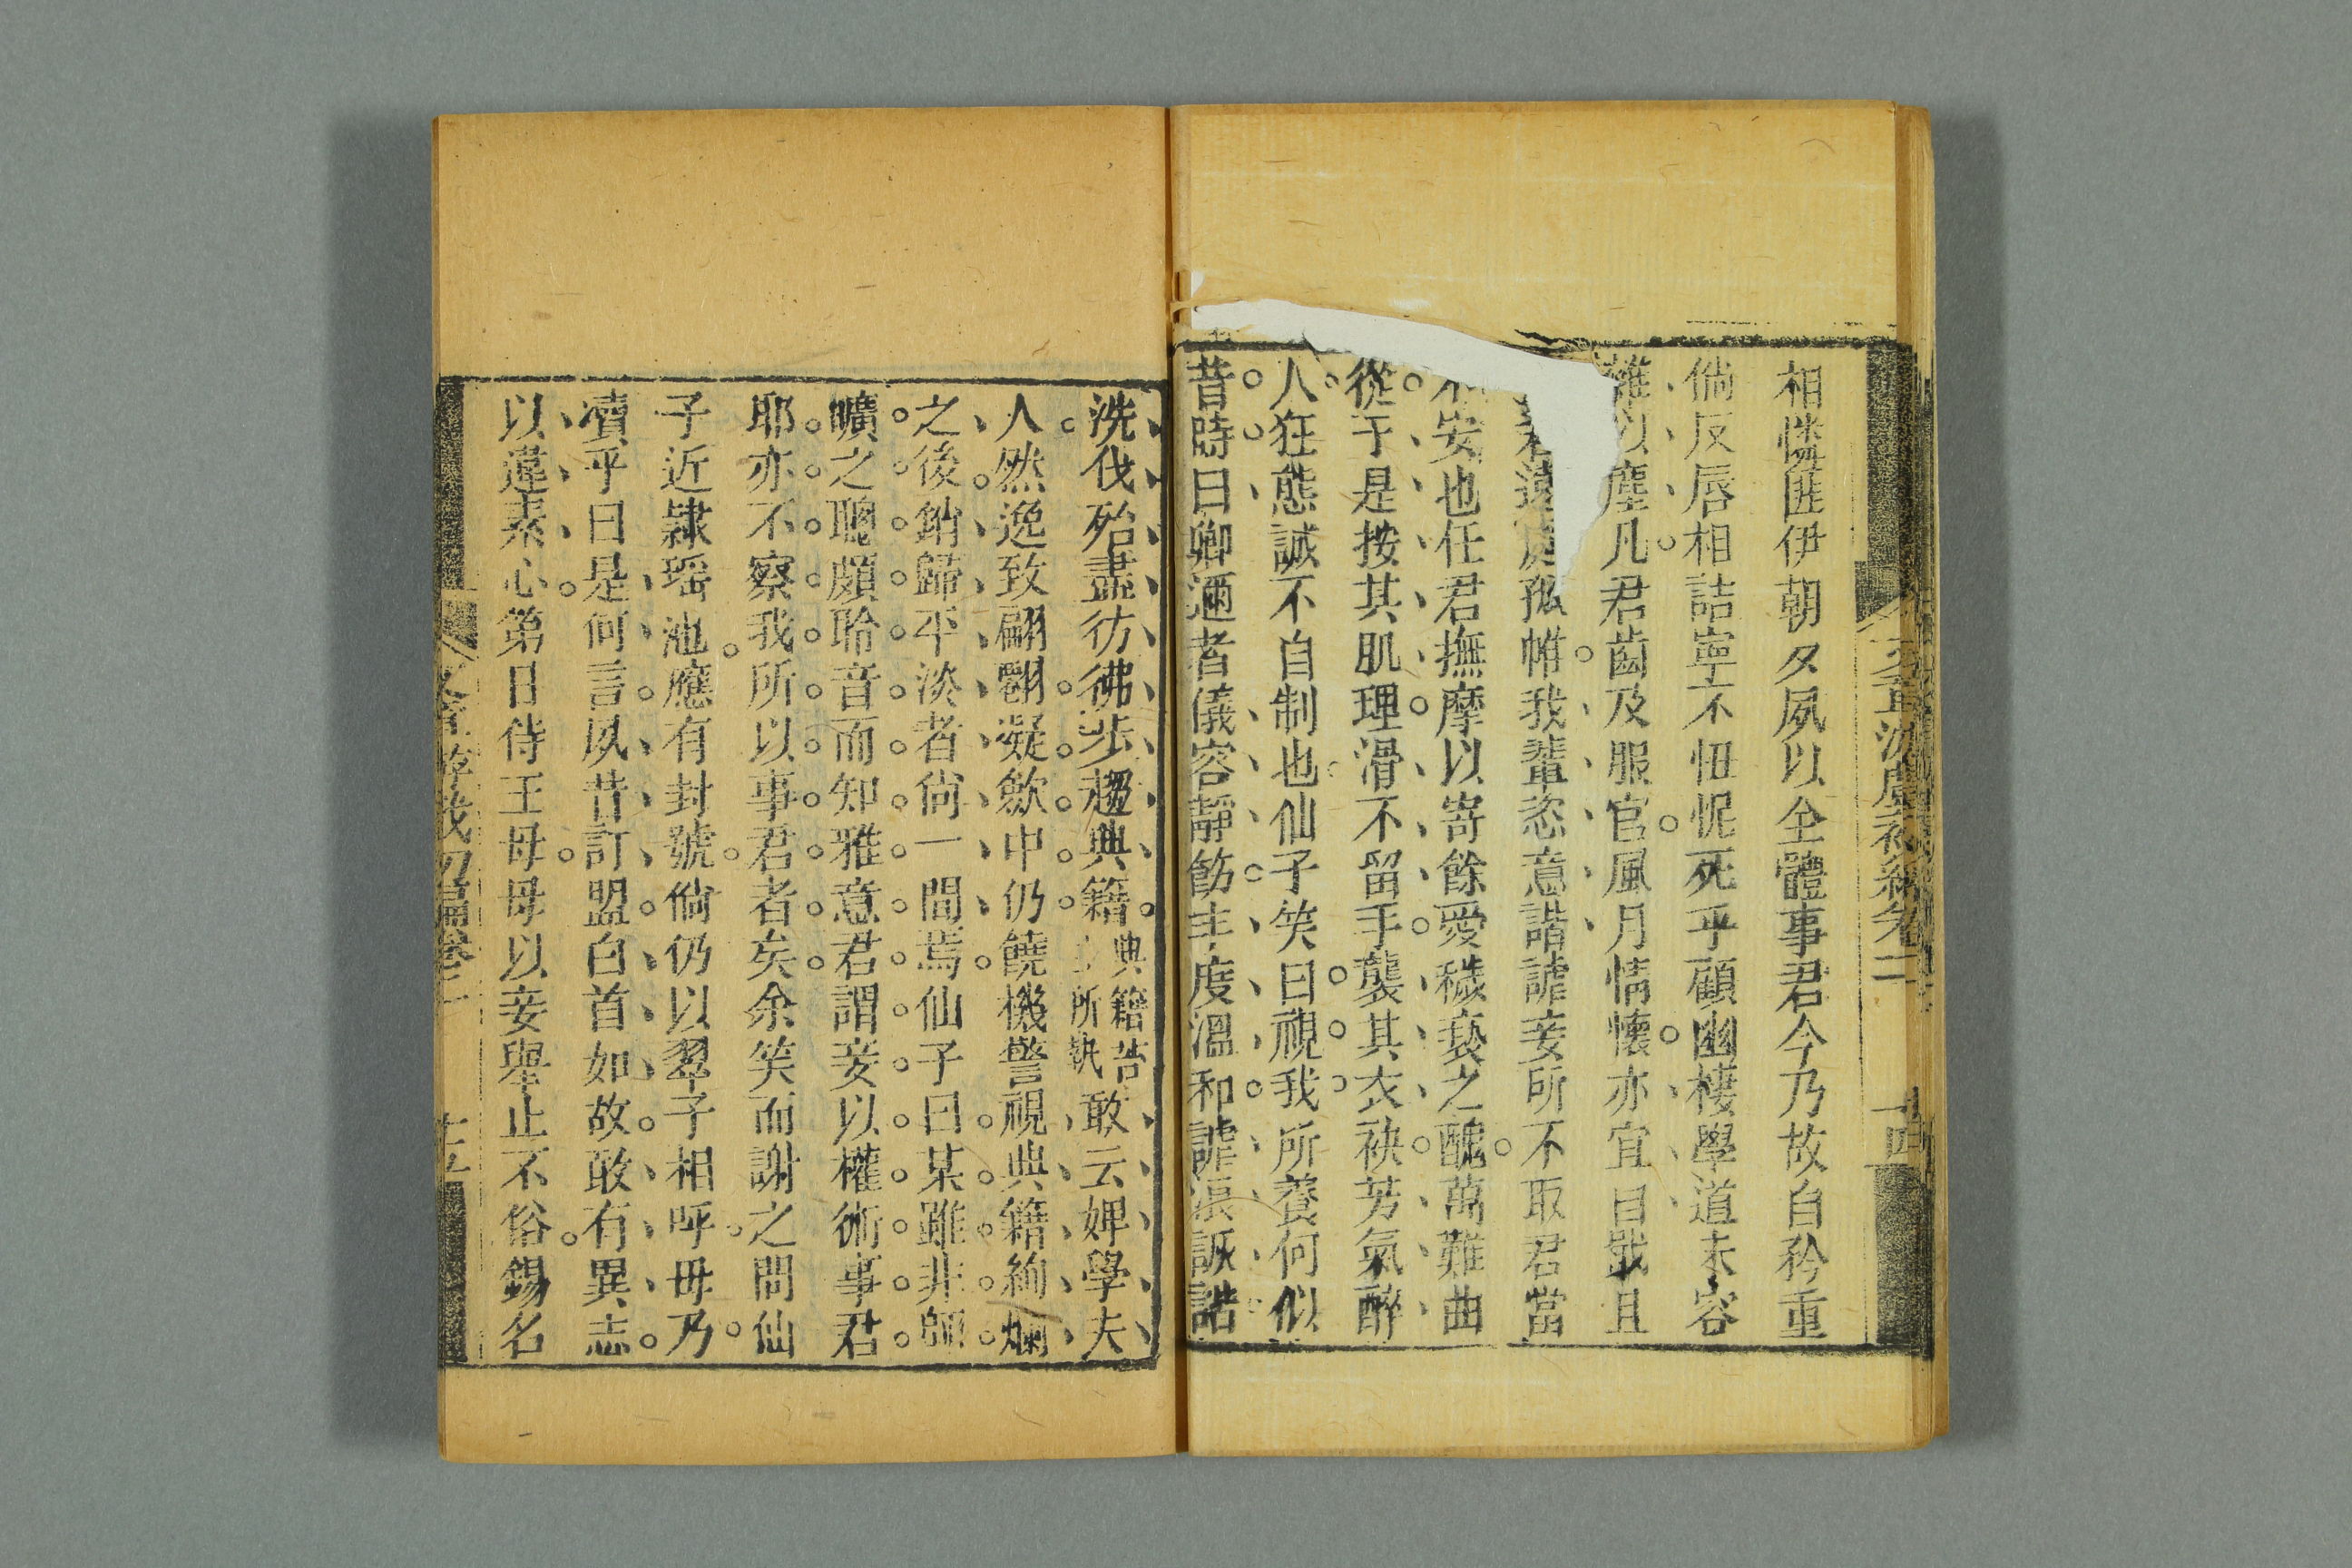 相憐匪伊朝夕夙以全體事君今乃故自矜重
倘反唇相詰寧不忸怩死乎顧幽棲學道未容
雜以塵凡君齒及服官風月情懷亦宜日戢且
孤帷我輩恣意諧謔妾所不取君當
安也任君撫摩以寄餘愛穢䙝之醜萬難曲
從于是按其肌理滑不留手襲其衣袂芳氣醉
人狂態誠不自制也仙子笑曰視我所養何似
昔時曰卿邇者儀容靜飭丰度溫和謔浪詼諧
洗伐殆盡彷彿步趨典籍典籍苦
所執敢云婢學夫
人然逸致翩翾凝斂中仍饒機警視典籍絢爛
之後銷歸平淡者尙一間焉仙子曰某雖非師
曠之聰頗聆音而知雅意君謂妾以權術事君
耶亦不察我所以事君者矣余笑而謝之問仙
子近隷瑶池應有封號倘仍以翠子相呼毋乃
凟乎曰是何言夙昔訂盟白首如故敢有異志
以違素心第日侍王母母以妾舉止不俗錫名